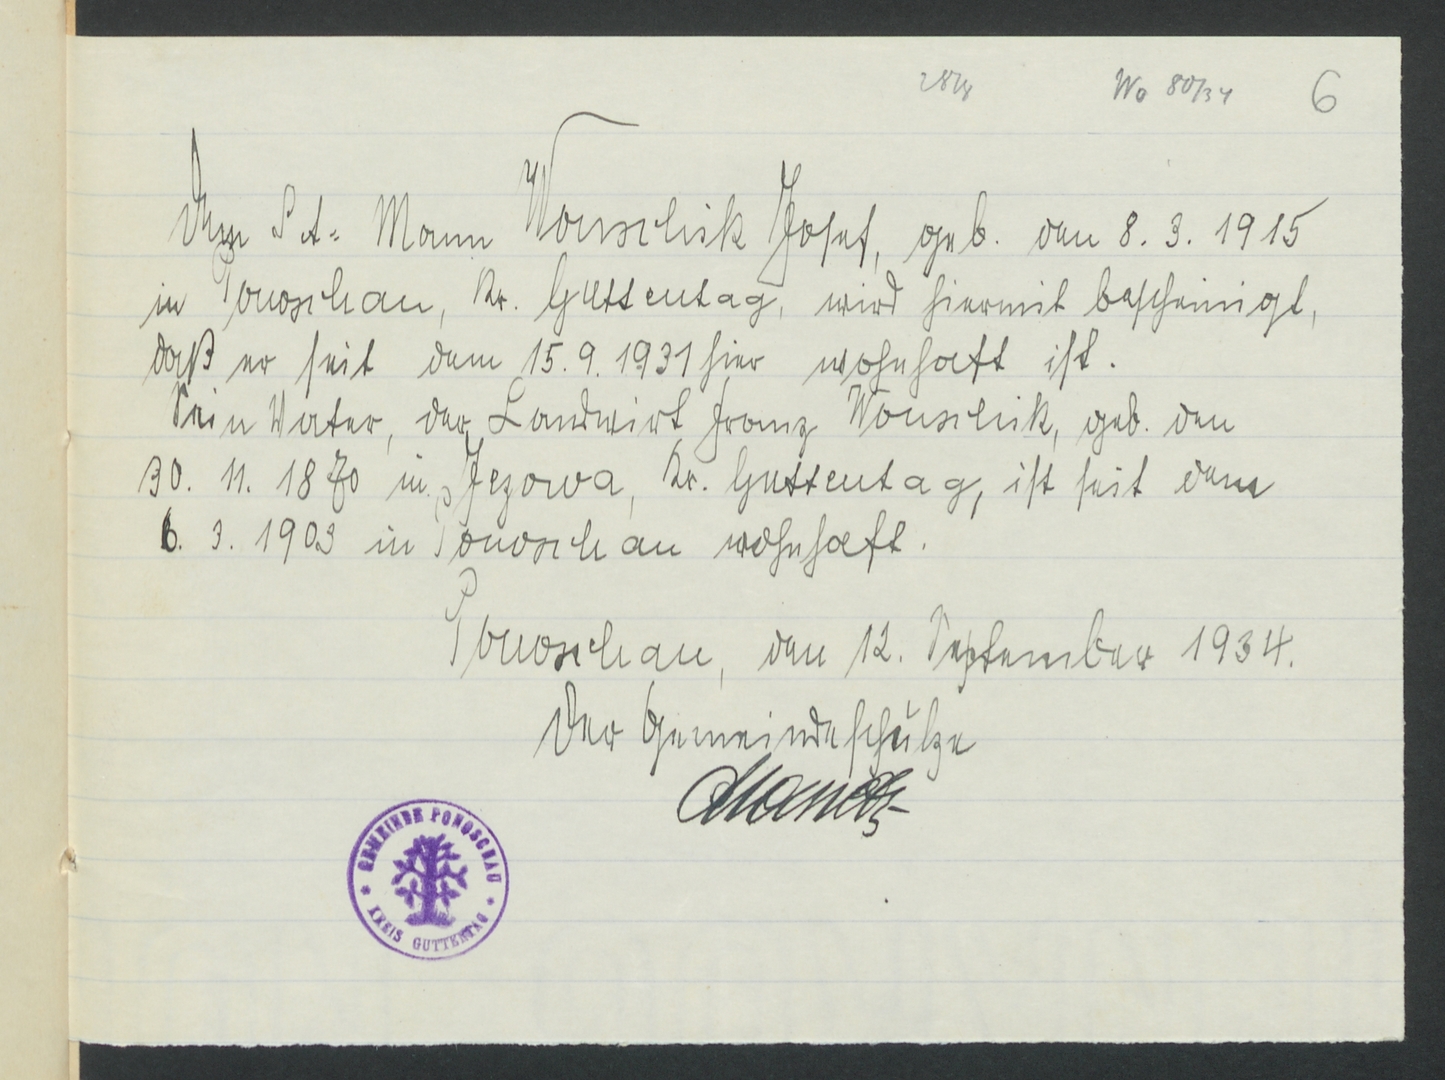 Wo 80/34 6
Dem S.A.- Mann Wonschik Josef, geb. den 8. 3. 1915
in Ponoschau, Kr. Guttentag, wird hiermit bescheinigt,
daß er seit dem 15. 9. 1931 hier wohnhaft ist.
Sein Vater, der Landwirt Franz Wonschik, geb. den
30. 11. 1870 in Jezowa, Kr. Guttentag, ist seit dem
6. 3. 1903 in Ponoschau wohnhaft.
Ponoschau, den 12. September 1934.
Der Gemeindeschulze
GEMEINDE PONOSCHAU
* KREIS GUTTENTAG *